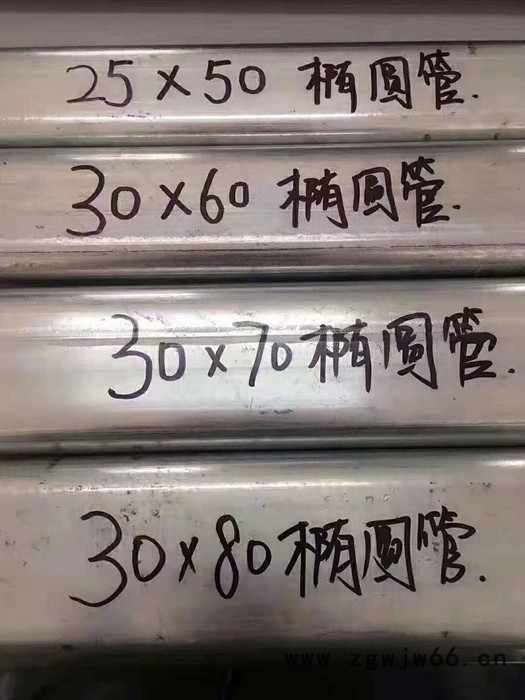 25×50 椭圆管.
30×60 椭圆管.
30×70 椭圆管.
30×80 椭圆管.
www.zgwjw66.cn